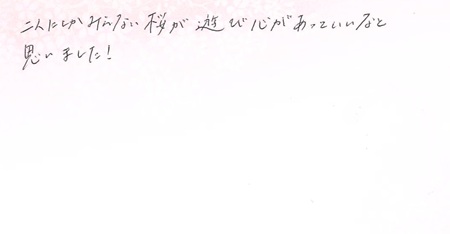 二人にしかみえない桜が遊び心があっていいなと
思いました!